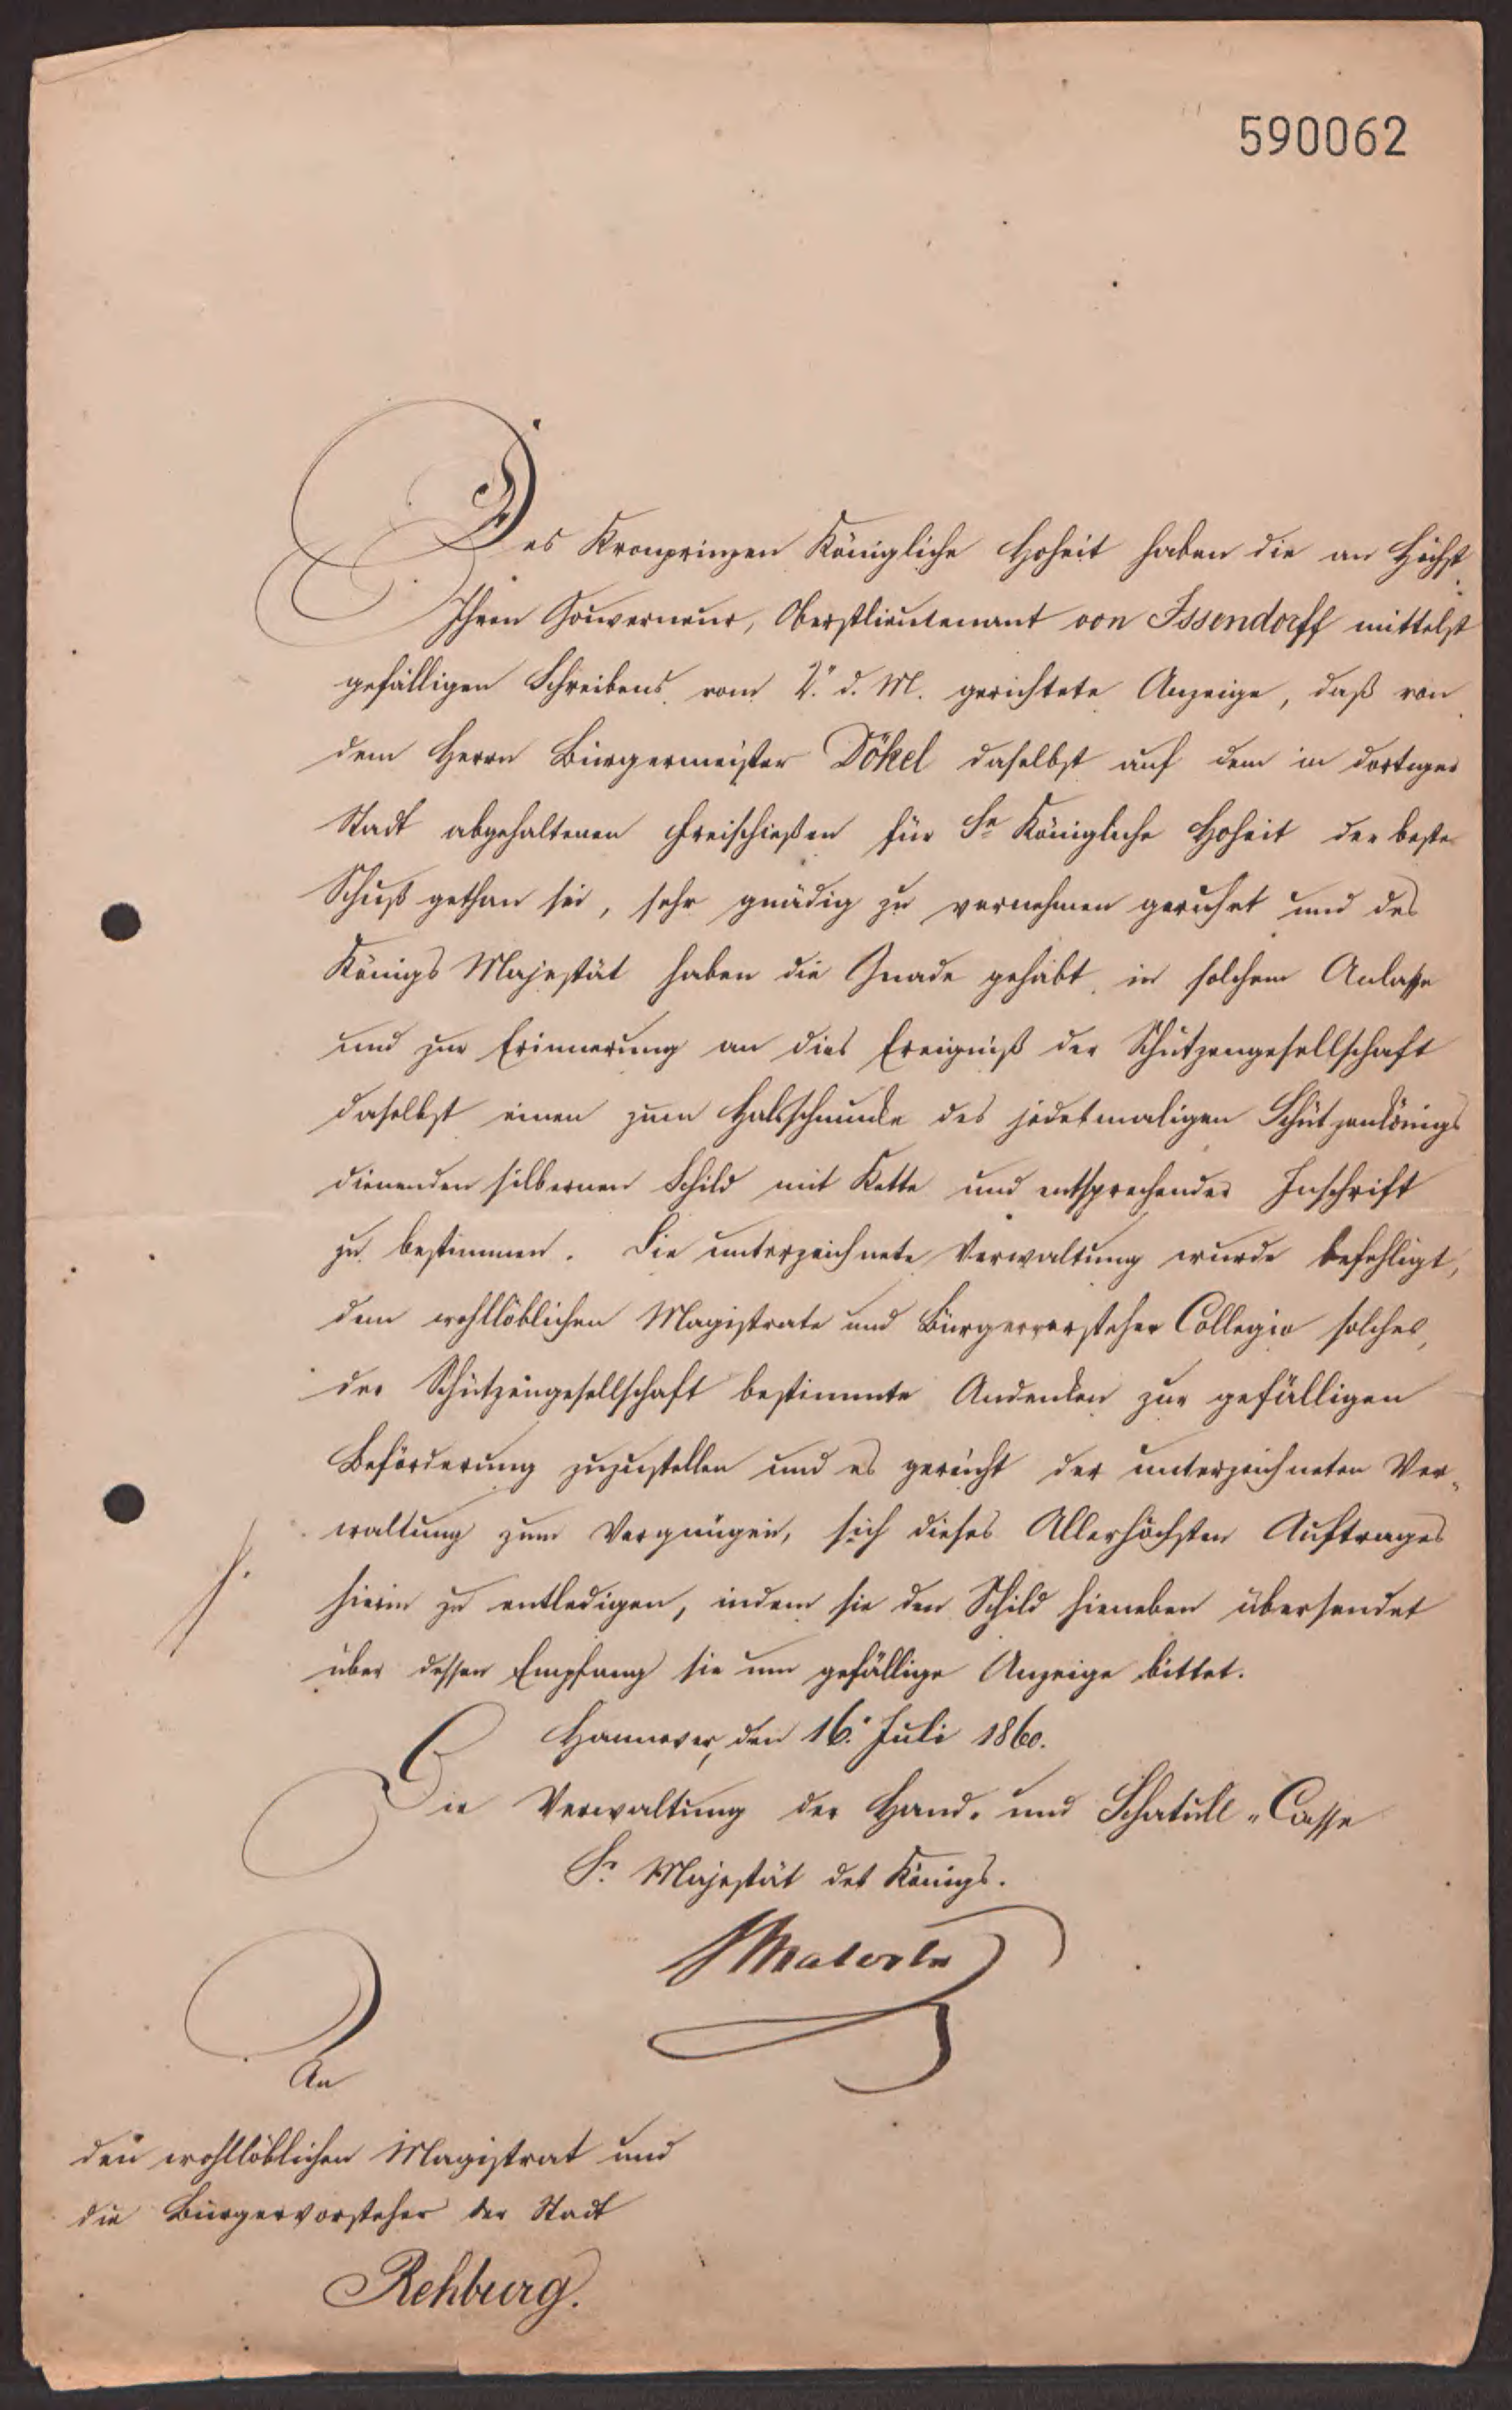 590062
Des Kronprinzen Königliche Hoheit haben die an Höchst
Ihren Gouverneur, Oberstlieutenant von Issendorff mittelst
gefälligen Schreibens vom 2. d. M. gerichtete Anzeige, daß von
dem Herrn Bürgermeister Dökel daselbst auf dem in dortiger
Stadt abgehaltenen Freischießen für Se Königliche Hoheit der beste
Schuß gethan sei, sehr gnädig zu vernehmen geruht und des
Königs Majestät haben die Gnade gehabt, in solchem Anlasse
und zur Erinnerung an dies Ereigniß der Schützengesellschaft
daselbst einen zum Halsschmucke des jedesmaligen Schützenkönigs
dienenden silbernen Schild mit Kette und entsprechender Inschrift
zu bestimmen. Die unterzeichnete Verwaltung wurde befehligt,
dem wohllöblichen Magistrate und Bürgervorsteher Collegio solches,
der Schützengesellschaft bestimmte Andenken zur gefälligen
Beförderung zuzustellen und es gereicht der unterzeichneten Ver-
waltung zum Vergnügen, sich dieses Allerhöchsten Auftrages
hierin zu entledigen, indem sie den Schild hieneben übersendet
über dessen Empfang sie um gefällige Anzeige bittet.
Hannover, den 16. Juli 1860.
Die Verwaltung der Hand- und Schatull-Casse
Sr. Majestät des Königs.
An
den wohllöblichen Magistrat und
die Bürgervorsteher der Stadt
Rehburg.